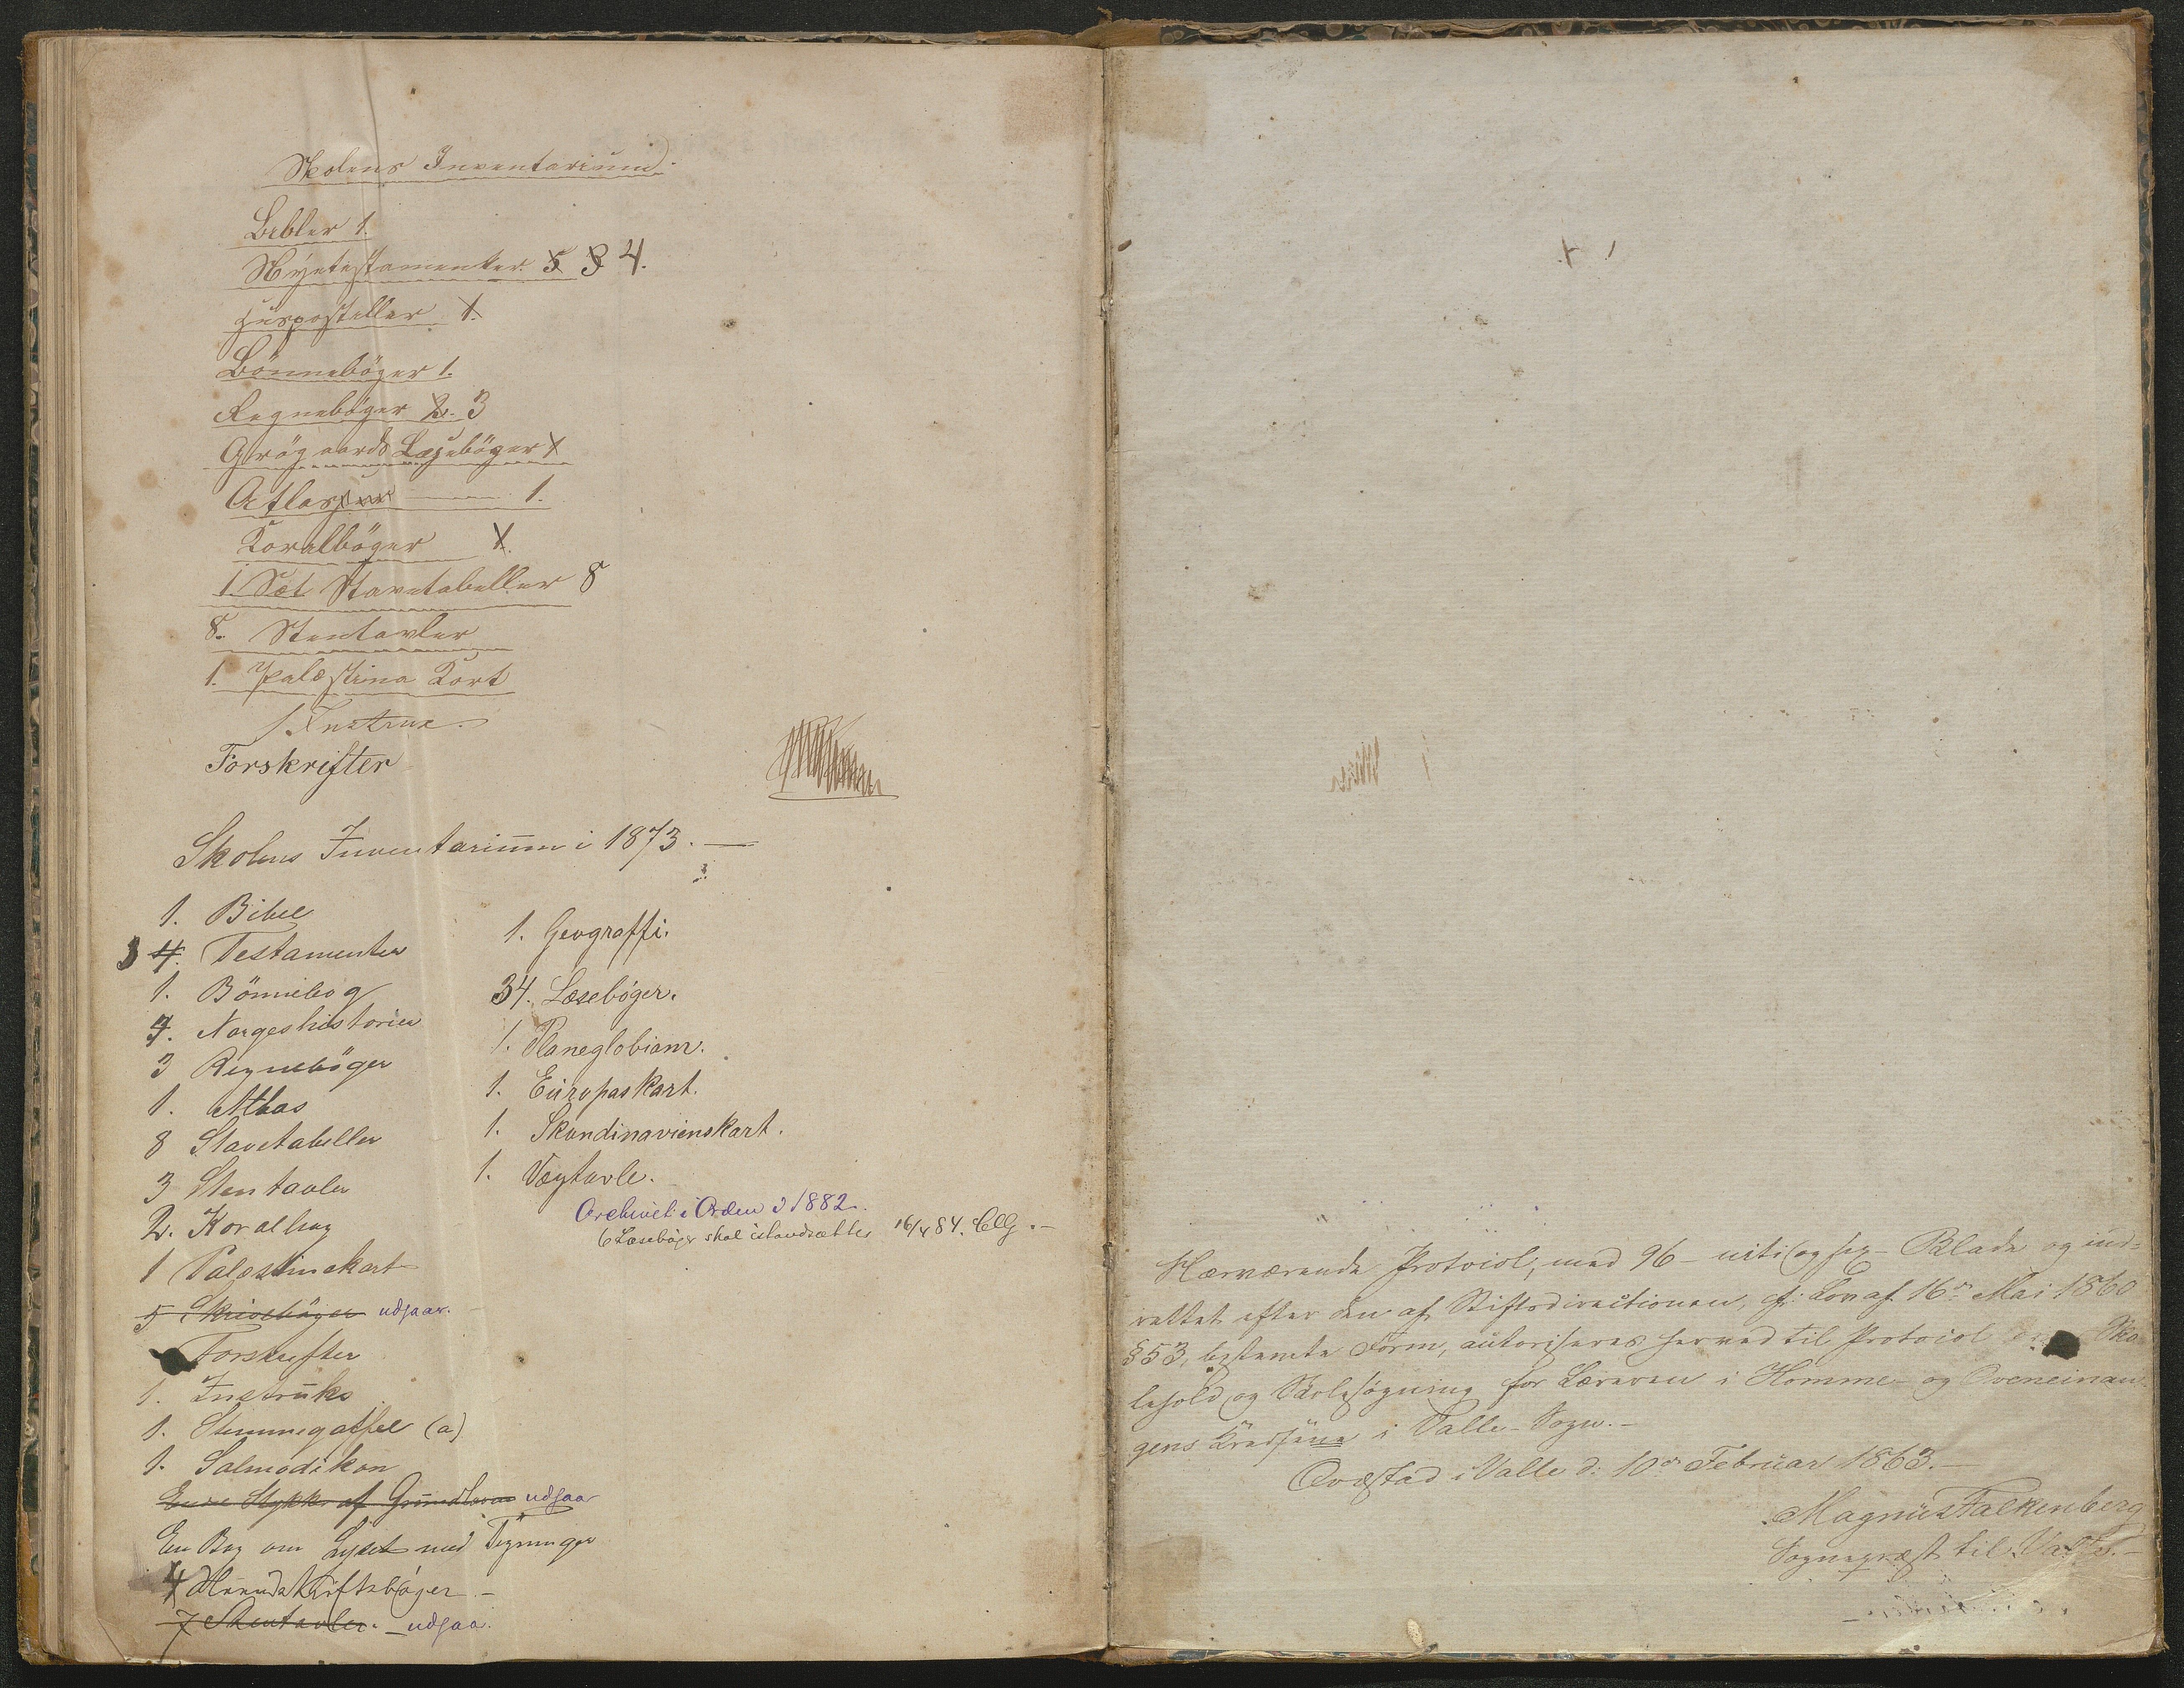 Skolens Inventarium.
Bibler 1.
Nyetestamenter 5 3 4.
Huspostiller 1.
Bönneböger 1.
Regneböger 2. 3
Grögaards Læseböger 1
Atlasser 1.
Koralböger 1.
1. Sæt Stavetabeller 8
8. Stentavler
1. Palæstina Kort
1. Instrux.
Forskrifter
Skolens Inventarium i 1873.
1. Bibel
3 4. Testamenter
1. Bönnebog
7. Norgeshistorier
3 Regneböger
1. Atlas
8 Stavetabeller
3 Stentavler
2. Koralbog
1 Palæstinakart
5 Skriveböger udgaar.
Forskrifter
1. Instruks
1. Stemmegaffel (a)
1. Salmodikon
Stykke af Grundloven udgaar
En Bog om Lyset med Tegninger
4 Haandskriftsbøger.-
7 Stentavler. - udgaa.
1. Geograffi.
34. Læsebøger.
1. Planeglobiam.
1. Europaskart.
1. Skandinavienskart.
1. Vægtavle.
Archivet i Orden 1882.
6 Læsebøger skal istandsættes 16/4 84.
Nærværende Protocol, med 96 - niti og sex - Blade og ind-
rettet efter den af Stiftsdirectionen, cfr. Lov af 16de Mai 1860
§ 53, bestemte Form, autoriseres herved til Protocol Sko-
lehold og Skolesøgning for Læreren i Homme- og Oveneinan-
gens Kredsene i Valle-Sogn.-
Qvæstad i Valle d. 10de Februar 1863.-
Magnus Falkenberg
Sognepræst til Valle.-